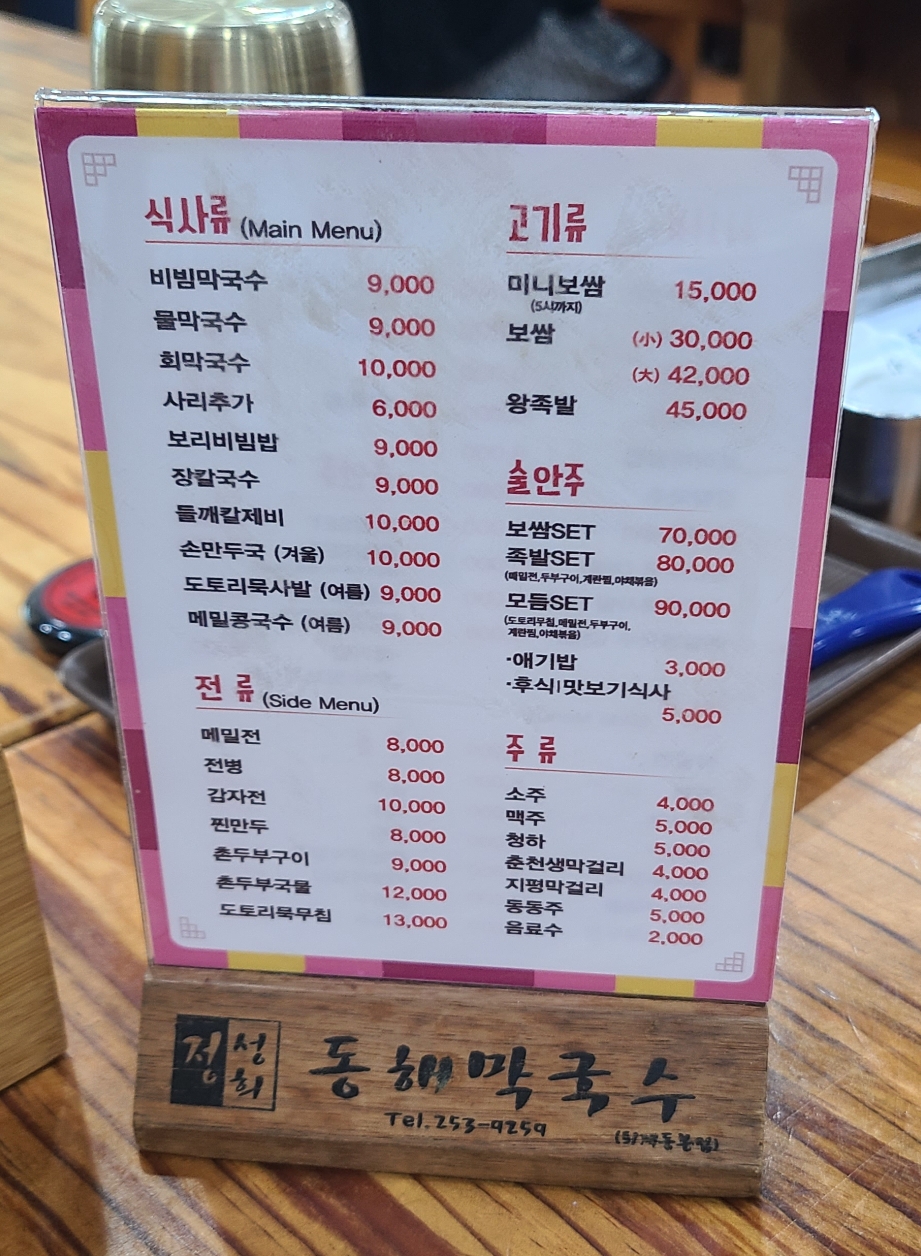 식사류 (Main Menu)
비빔막국수 9,000
물막국수 9,000
회막국수 10,000
사리추가 6,000
보리비빔밥 9,000
장칼국수 9,000
들깨칼제비 10,000
손만두국 (겨울) 10,000
도토리묵사발 (여름) 9,000
메밀콩국수 (여름) 9,000
전 류 (Side Menu)
메밀전 8,000
전병 8,000
감자전 10,000
찐만두 8,000
촌두부구이 9,000
촌두부국물 12,000
도토리묵무침 13,000
고기류
미니보쌈 15,000
(5시까지)
보쌈 (小) 30,000
(大) 42,000
왕족발 45,000
술안주
보쌈SET 70,000
족발SET 80,000
(메밀전,두부구이,계란찜,야채볶음)
모듬SET 90,000
(도토리무침,메밀전,두부구이,
계란찜,야채볶음)
·애기밥 3,000
·후식|맛보기식사
5,000
주 류
소주 4,000
맥주 5,000
청하 5,000
춘천생막걸리 4,000
지평막걸리 4,000
동동주 5,000
음료수 2,000
정성희 동해막국수
Tel.253-9259